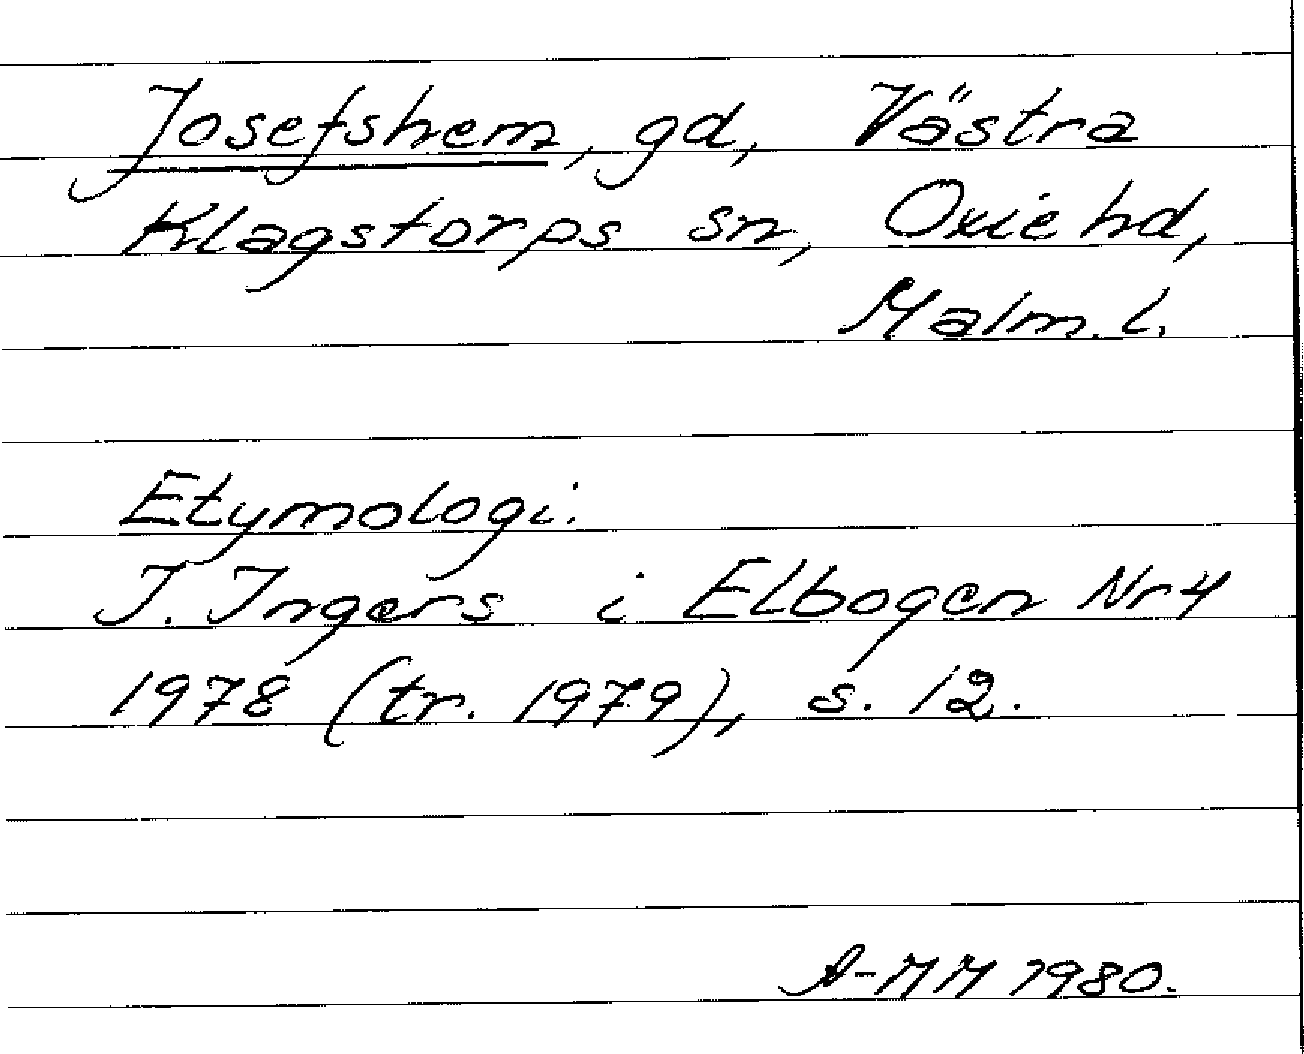 Josefshem, gd, Västra
Klagstorps sn, Oxie hd,
Malm. l.
Etymologi:
I. Ingers i Elbogen Nr 4
1978 (tr. 1979), s. 12.
A-MM 1980.